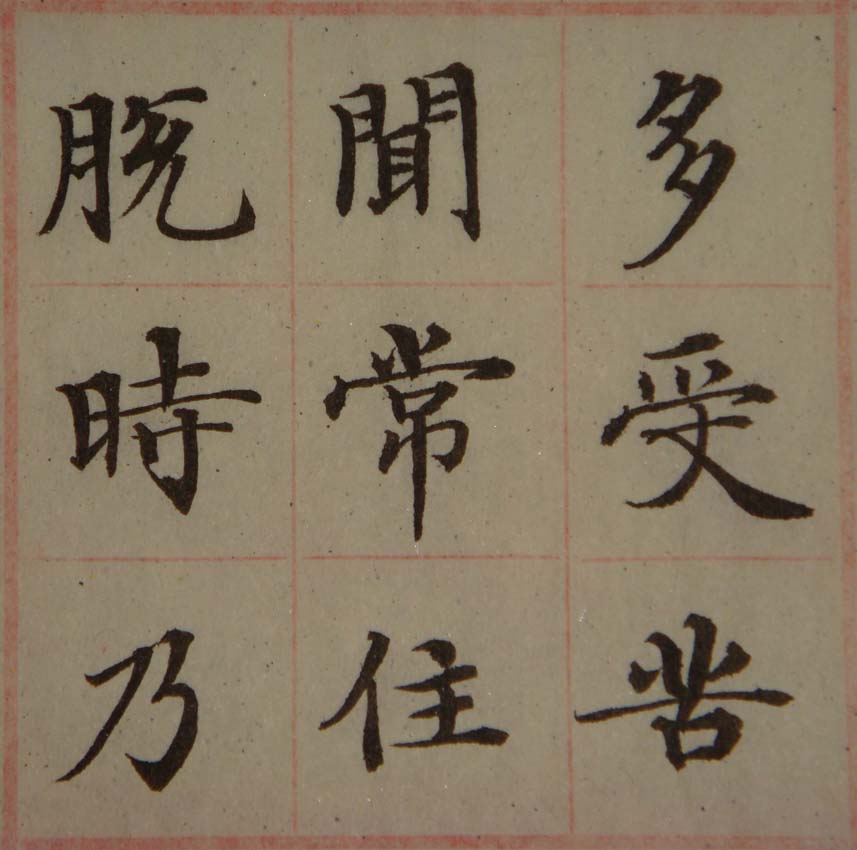 多受苦
聞常住
脫時乃